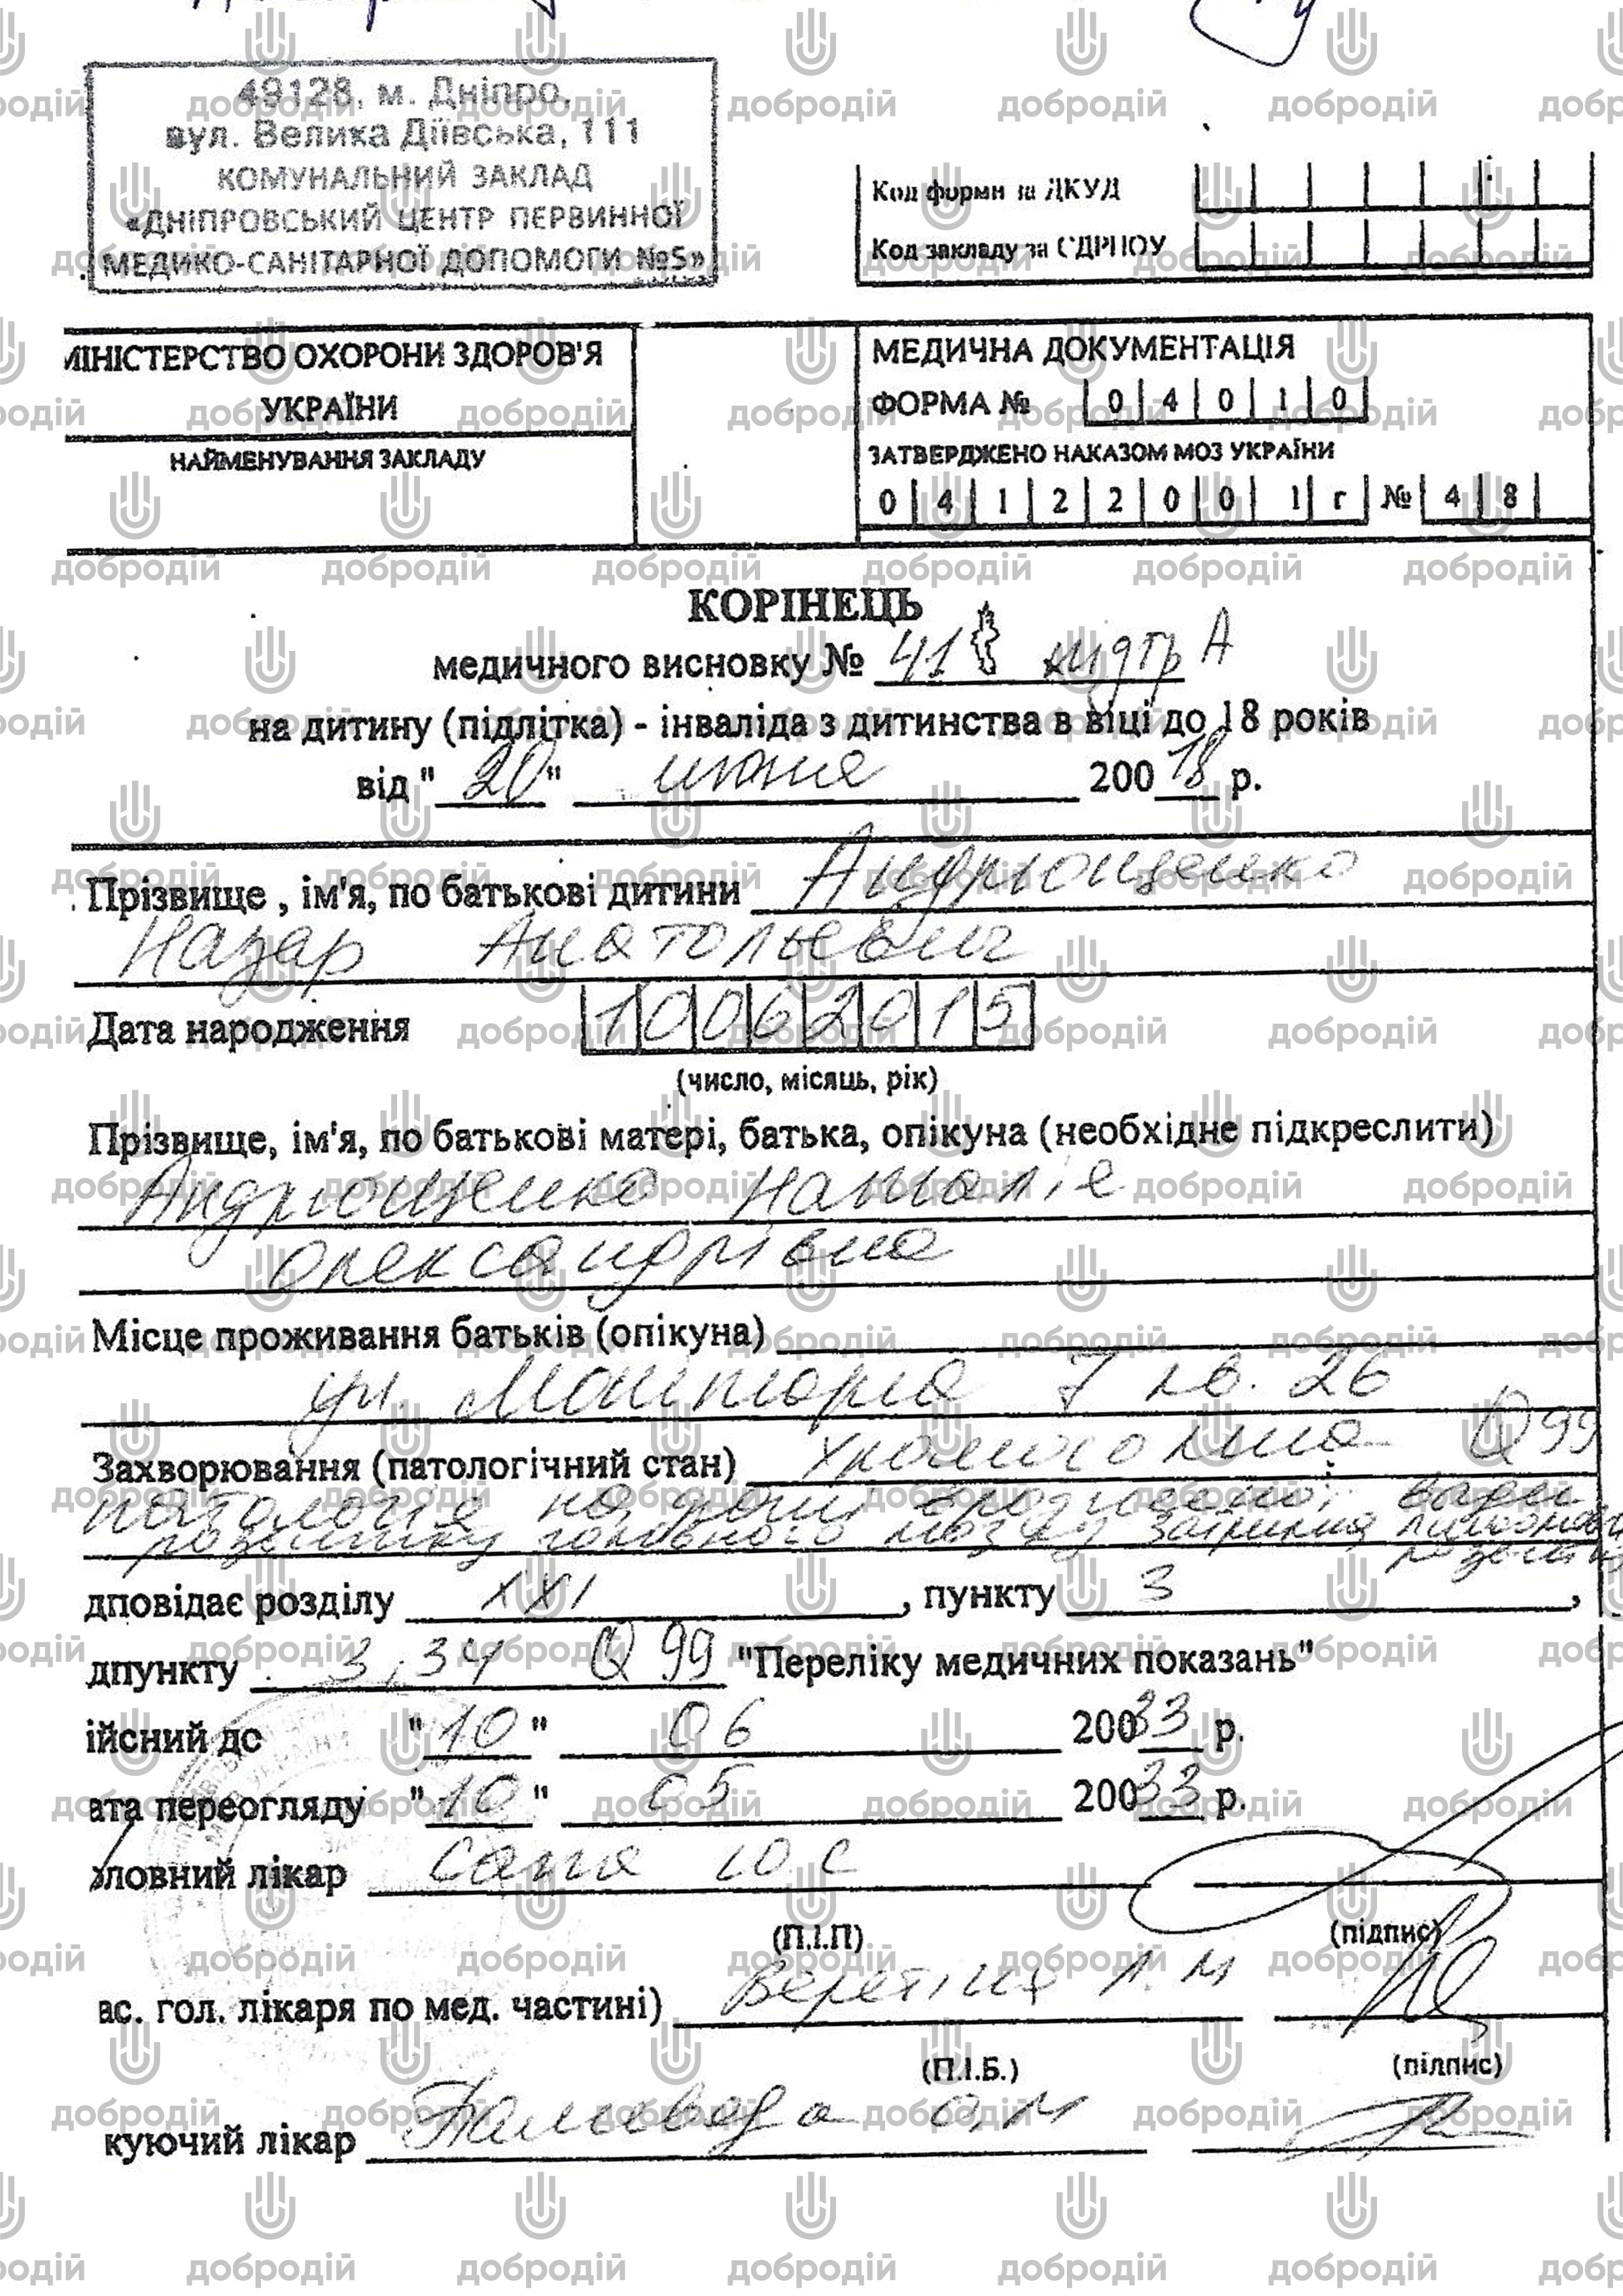 49128, м. Дніпро,
вул. Велика Діївська, 111
КОМУНАЛЬНИЙ ЗАКЛАД
«ДНІПРОВСЬКИЙ ЦЕНТР ПЕРВИННОЇ
МЕДИКО-САНІТАРНОЇ ДОПОМОГИ №5»
Код форми за ДКУД
Код закладу за ЄДРПОУ
МІНІСТЕРСТВО ОХОРОНИ ЗДОРОВ'Я
УКРАЇНИ
НАЙМЕНУВАННЯ ЗАКЛАДУ
МЕДИЧНА ДОКУМЕНТАЦІЯ
ФОРМА № 0 4 0 1 0
ЗАТВЕРДЖЕНО НАКАЗОМ МОЗ УКРАЇНИ
0 4 1 2 2 0 0 1 г № 4 8
КОРІНЕЦЬ
медичного висновку № 41 підгр А
на дитину (підлітка) - інваліда з дитинства в віці до 18 років
від " 20 " июня 200 18 р.
Прізвище , ім'я, по батькові дитини Андрющенко
Назар Анатольевич
Дата народження 1 0 0 6 2 0 1 5
(число, місяць, рік)
Прізвище, ім'я, по батькові матері, батька, опікуна (необхідне підкреслити)
Андрющенко Наталія
Олександрівна
Місце проживання батьків (опікуна)
ул. 7 кв. 26
Захворювання (патологічний стан) Q 99
патологія на фоні вродженої вади
розвитку головного мозку затримка
дповідає розділу XXI , пункту 3 ,
дпункту 3,34 Q 99 "Переліку медичних показань"
ійсний до " 10 " 06 200 33 р.
ата переогляду " 10 " 05 200 33 р.
ловний лікар Ю С
(П.І.П) (підпис)
ас. гол. лікаря по мед. частині) Л. М
(П.І.Б.) (підпис)
куючий лікар О.М
добродій